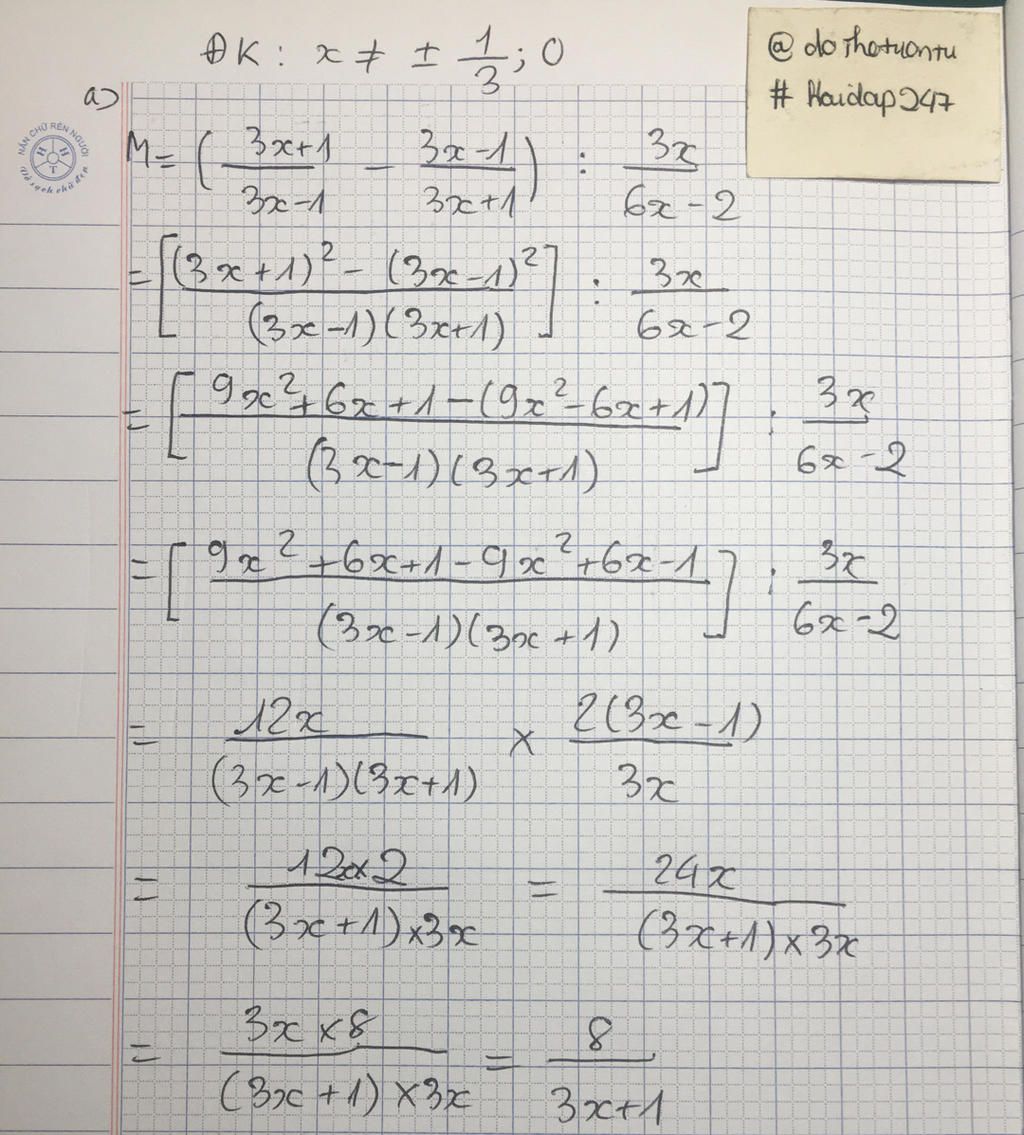 ĐK : x ≠ ± 1/3 ; 0
@ dothotuantu
# Hoidap247
a)
NẮN CHỮ RÈN NGƯỜI
H H T
Vở sạch chữ đẹp
M = ( (3x+1)/(3x-1) - (3x-1)/(3x+1) ) : 3x/(6x-2)
= [ ((3x+1)² - (3x-1)²)/((3x-1)(3x+1)) ] : 3x/(6x-2)
= [ (9x²+6x+1-(9x²-6x+1))/((3x-1)(3x+1)) ] : 3x/(6x-2)
= [ (9x²+6x+1-9x²+6x-1)/((3x-1)(3x+1)) ] : 3x/(6x-2)
= 12x/((3x-1)(3x+1)) × 2(3x-1)/3x
= 12x×2/((3x+1)×3x) = 24x/((3x+1)×3x)
= 3x×8/((3x+1)×3x) = 8/(3x+1)